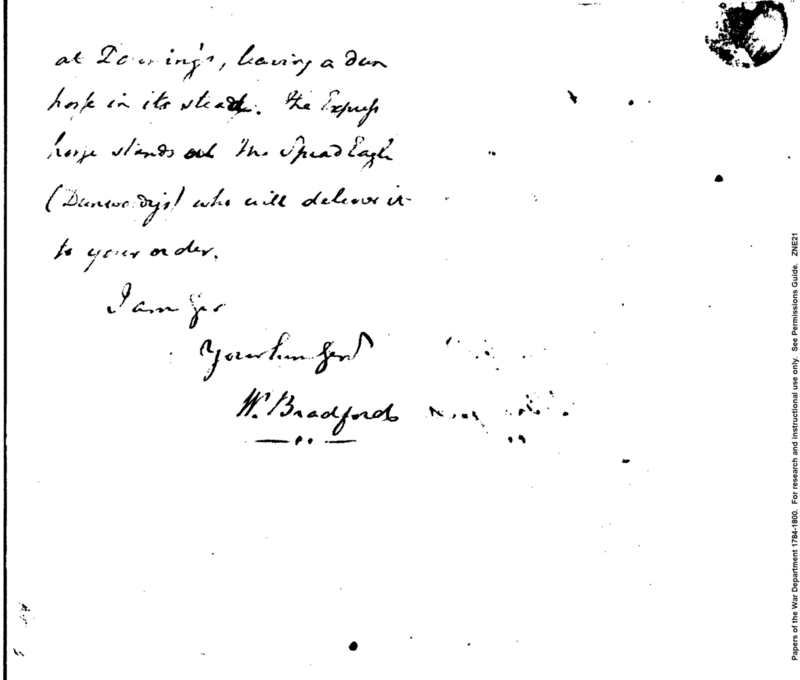 at Downing's, leaving a dun
horse in its stead. The Express
horse stands at the Spread Eagle
(Dunwoodys) who will deliver it
to your order.
I am Sir
Your hum Servt
W. Bradford
Papers of the War Department 1784-1800. For research and instructional use only. See Permissions Guide. ZNE21